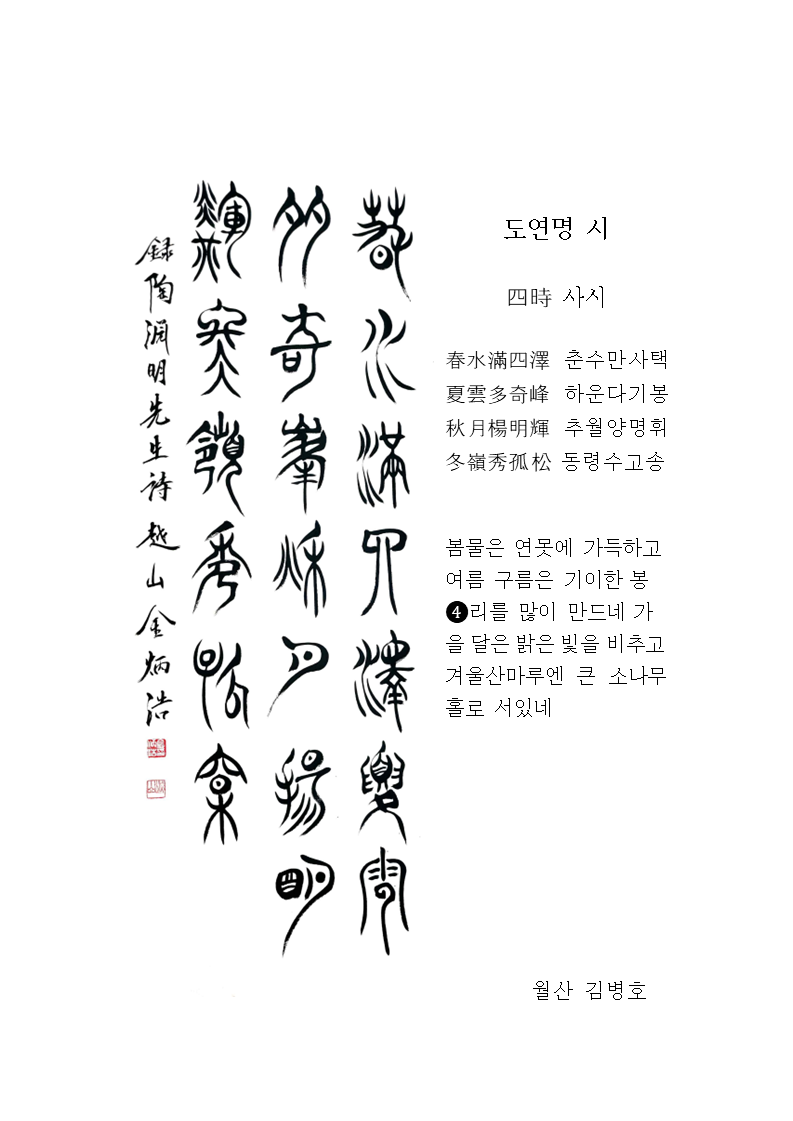 도연명 시
四時 사시
春水滿四澤 춘수만사택
夏雲多奇峰 하운다기봉
秋月楊明輝 추월양명휘
冬嶺秀孤松 동령수고송
봄물은 연못에 가득하고
여름 구름은 기이한 봉
❹리를 많이 만드네 가
을 달은 밝은 빛을 비추고
겨울산마루엔 큰 소나무
홀로 서있네
월산 김병호
春水滿四澤夏雲
多奇峯秋月揚明
輝冬嶺秀孤松
録陶淵明先生詩 越山 金炳浩